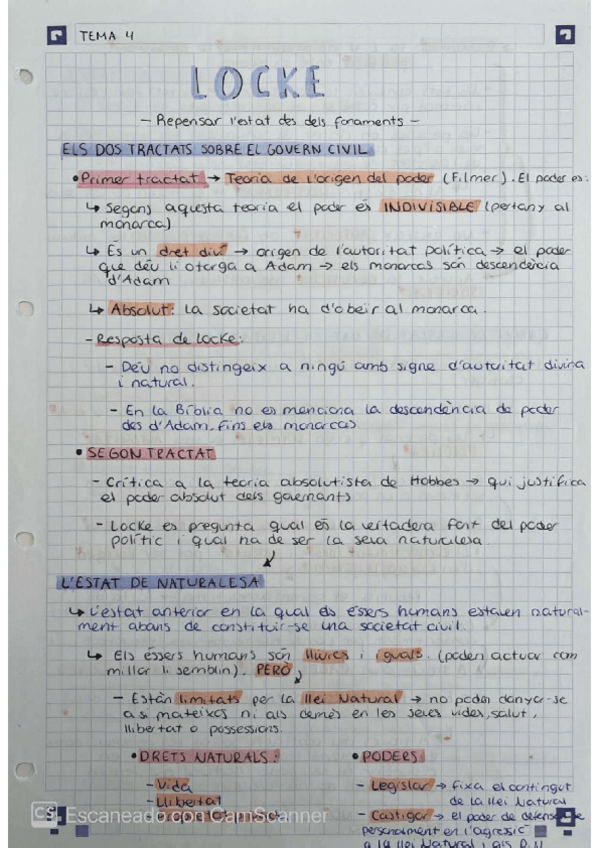 TEMA 4
LOCKE
- Repensar l'estat des dels fonaments -
ELS DOS TRACTATS SOBRE EL GOVERN CIVIL
• Primer tractat → Teoria de l'origen del poder (Filmer). El poder es:
↳ Segons aquesta teoria el poder és INDIVISIBLE (pertany al
monarca)
↳ És un dret diví → origen de l'autoritat política → el poder
que déu li otorga a Adam → els monarcas són descendència
d'Adam
↳ Absolut: la societat ha d'obeir al monarca.
- Resposta de Locke:
- Déu no distingeix a ningú amb signe d'autoritat divina
i natural.
- En la Bíblia no es menciona la descendència de poder
des d'Adam fins els monarcas
• SEGON TRACTAT
- Crítica a la teoria absolutista de Hobbes → qui justifica
el poder absolut dels governants
- Locke es pregunta qual és la vertadera font del poder
polític i qual ha de ser la seva naturalesa
L'ESTAT DE NATURALESA
↳ L'estat anterior en la qual els éssers humans estaven natural-
ment abans de constituir-se una societat civil.
↳ Els éssers humans són lliures i iguals. (poden actuar com
millor li semblin). PERÒ
- Están limitats per la llei Natural → no poden danyar-se
a si mateixos ni als demés en les seves vides, salut,
llibertat o possessions.
• DRETS NATURALS:
- Vida
- Llibertat
• PODERS
- Legislar → Fixa el contingut
de la llei Natural
- Castigar → el poder de defensar-se
personalment en l'agressió
a la llei Natural i als D.N
CS Escaneado con CamScanner